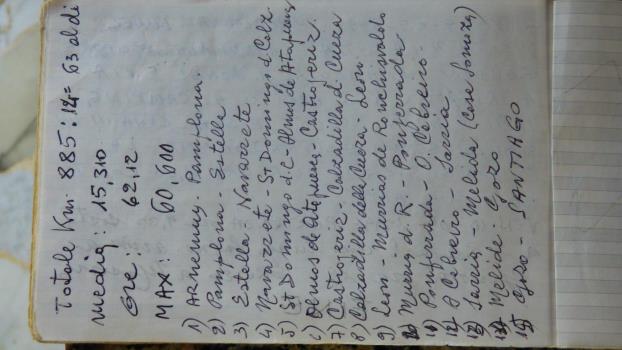 Totale Km. 885 : 14 = 63 al dì
media : 15,310
Ore : 62,12
MAX : 60,600
1) Arneguy - Pamplona.
2) Pamplona - Estella
3) Estella - Navarrete
4) Navarrete - St Domingo d Calz.
5) St Domingo d. C - Olmos de Atapuerca
6) Olmos de Atapuerca - Castrogeriz.
7) Castrogeriz - Calzadilla d. Cueza
8) Calzadilla della Cueza - Leon
9) Leon - Murias de
10) Murias d. R. - Ponferrada
11) Ponferrada - O. Cebreiro.
12) O Cebreiro - Sarria
13) Sarria - Melide (Casa Somoza)
14) Melide - Gozo
15) Gozo - SANTIAGO